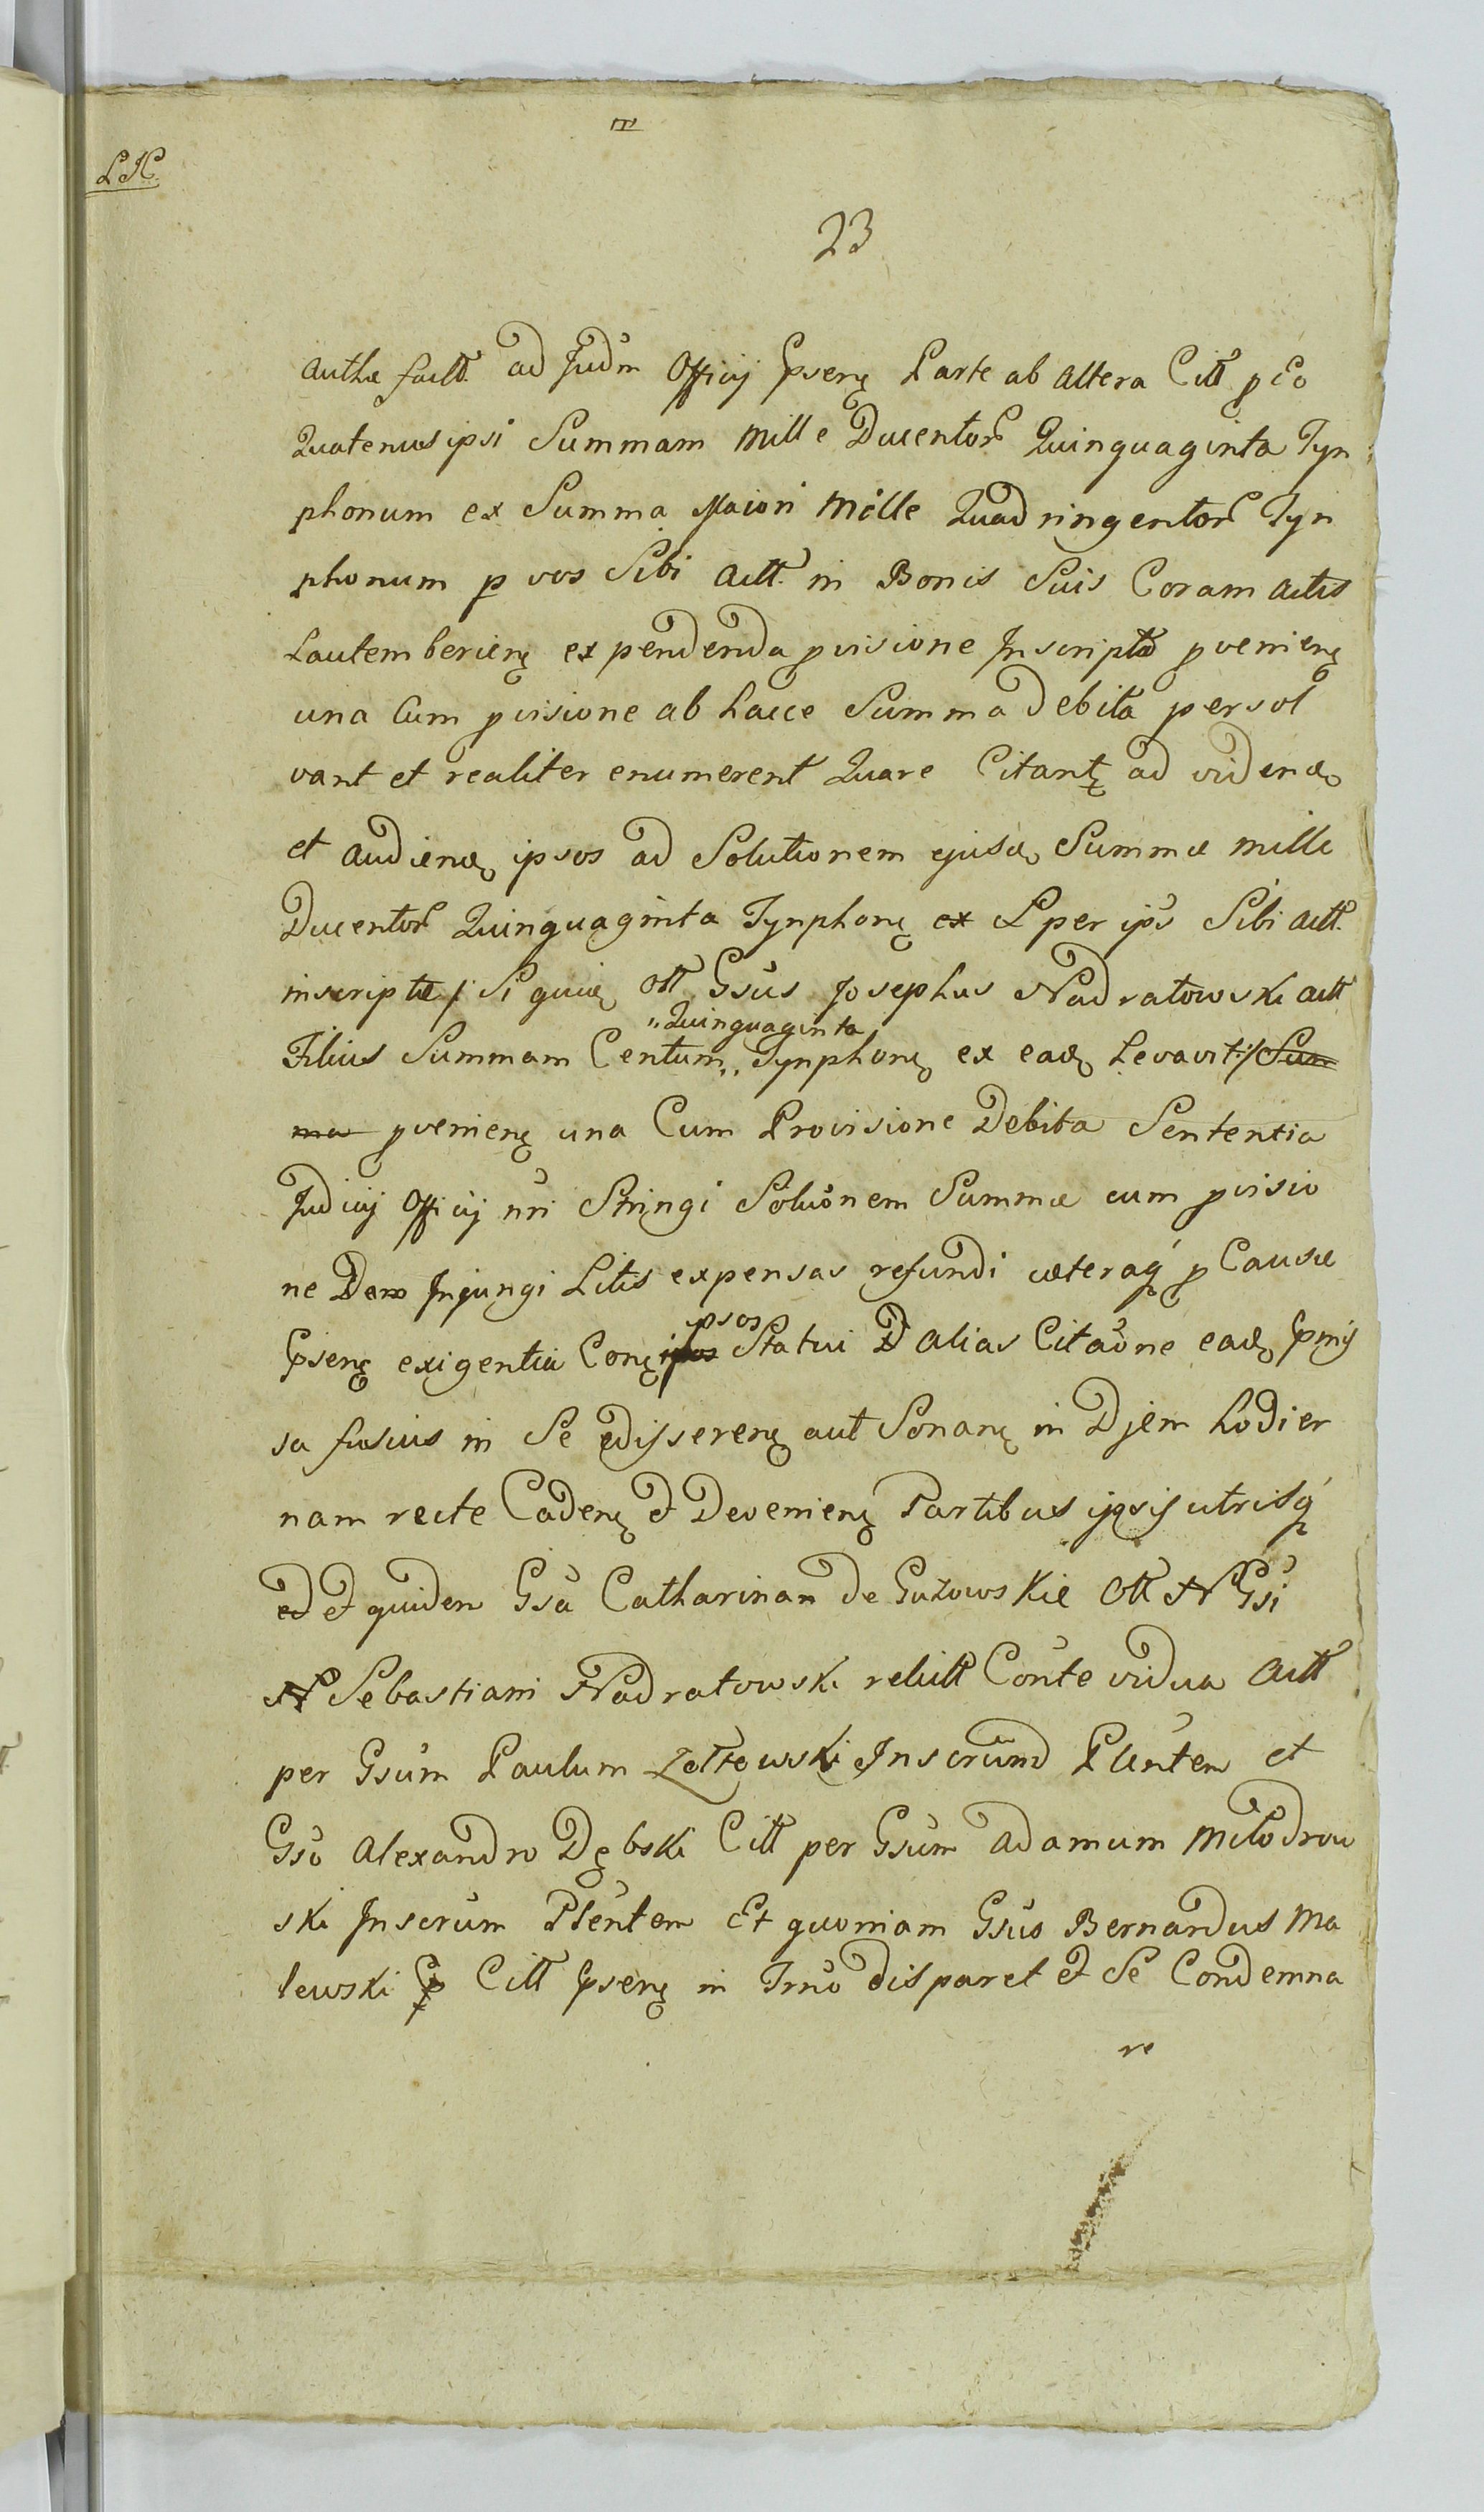 III
LK
23
Authæ factt ad Judm Officij Pñsenę Parte ab altera Citt p Eo
Quatenus ipsi Summam Mille Ducentor Quinquaginta Tyn
phonum ex Summa Maiori Mille Quadringentor Tyn
phonum p vos Sibi Actt. in Bonis Suis Coram Actis
Lautemberienę expendenda pvisione Inscripta pvenienę
una Cum pvisione ab hacce Summa Debita persol
vant et realiter enumerent Quare Citantę ad videndę
et Audiendę ipsos ad Solutionem ejusdę Summæ Mille
Ducentor Quinquaginta Tynphonę ex per ips Sibi Actt.
inscriptæ /: Si quidę Ott Gsus Josephus Nadratowski Actt
„Quinquaginta
Filius Summam Centum„ Tynphonę ex eadę Levavit :/ Sum
ma pvenienę una Cum Provisione Debita Sententia
Judicij Officij nri Stringi Soluonem Summæ cum pvisio
ne Dem Injungi Litis expensas refundi cæteraq p Causæ
ipsos
Pñsenę exigentia Conę ipsos Statui D alias Citaone eadę Pmis
sa fusius in Se edisserenę aut Sonanę in Djem hodier
nam recte Cadenę et Devenienę Partibus ipsis utrisq
ed et quidem Gsa Catharinan de Guzowskie Ott N Gsi
N Sebastiani Nadratowski relictt Conte vidua Actt
per Gsum Paulum Zełtowski Inscrum Plentem et
Gso Alexandro Dębski Citt per Gsum Adamum Miłodrow
ski Inscrum Plentem Et quoniam Gsus Bernardus Ma
lewski Citt Pñsenę in Trno disparet et Se Condemna
re